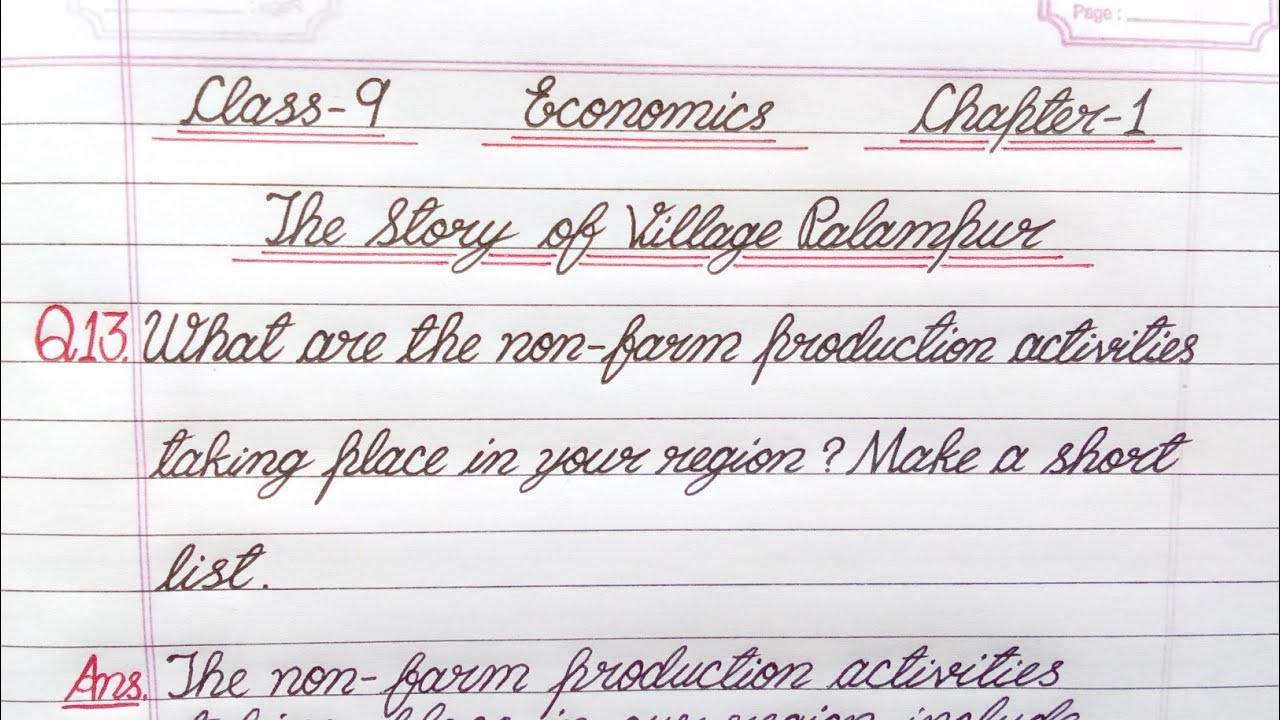 Page :
Class-9 Economics Chapter-1
The Story of Village Palampur
Q.13. What are the non-farm production activities
taking place in your region? Make a short
list.
Ans. The non-farm production activities
taking place in our region include